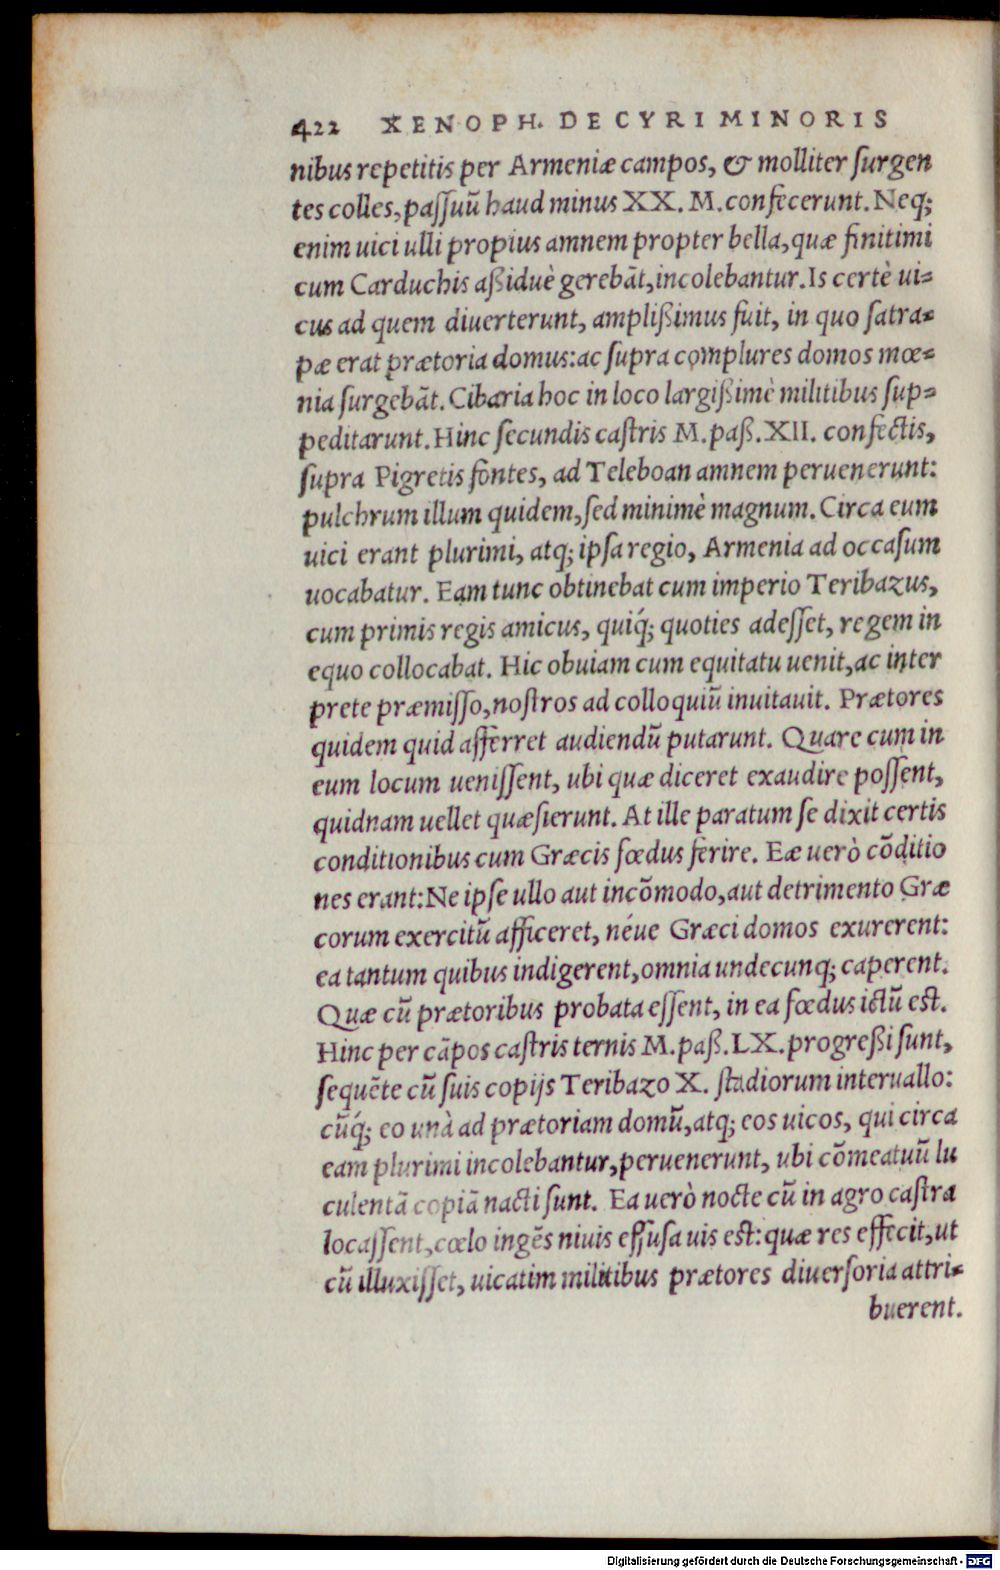 422 XENOPH. DE CYRI MINORIS
nibus repetitis per Armeniæ campos, & molliter ſurgen
tes colles, paſſuũ haud minus XX. M. confecerunt. Neq;
enim uici ulli propius amnem propter bella, quæ finitimi
cum Carduchis aßiduè gerebãt, incolebantur. Is certè ui=
cus ad quem diuerterunt, amplißimus fuit, in quo ſatra=
pæ erat prætoria domus: ac ſupra complures domos mœ=
nia ſurgebãt. Cibaria hoc in loco largißimè militibus ſup=
peditarunt. Hinc ſecundis caſtris M. paß. XII. confectis,
ſupra Pigretis fontes, ad Teleboan amnem peruenerunt:
pulchrum illum quidem, ſed minimè magnum. Circa eum
uici erant plurimi, atq; ipſa regio, Armenia ad occaſum
uocabatur. Eam tunc obtinebat cum imperio Teribazus,
cum primis regis amicus, quiq́; quoties adeſſet, regem in
equo collocabat. Hic obuiam cum equitatu uenit, ac inter
prete præmiſſo, noſtros ad colloquiũ inuitauit. Prætores
quidem quid afferret audiendũ putarunt. Quare cum in
eum locum ueniſſent, ubi quæ diceret exaudire poſſent,
quidnam uellet quæſierunt. At ille paratum ſe dixit certis
conditionibus cum Græcis fœdus ferire. Eæ uerò cõditio
nes erant: Ne ipſe ullo aut incõmodo, aut detrimento Græ
corum exercitũ afficeret, néue Græci domos exurerent:
ea tantum quibus indigerent, omnia undecunq; caperent.
Quæ cũ prætoribus probata eſſent, in ea fœdus ictũ eſt.
Hinc per cãpos caſtris ternis M. paß. LX. progreßi ſunt,
ſequẽte cũ ſuis copijs Teribazo X. ſtadiorum interuallo:
cũq́; eo unà ad prætoriam domũ, atq; eos uicos, qui circa
eam plurimi incolebantur, peruenerunt, ubi cõmeatuũ lu
culentã copiã nacti ſunt. Ea uerò nocte cũ in agro caſtra
locaſſent, cœlo ingẽs niuis effuſa uis eſt: quæ res effecit, ut
cũ illuxiſſet, uicatim militibus prætores diuerſoria attri=
buerent.
Digitalisierung gefördert durch die Deutsche Forschungsgemeinschaft - DFG